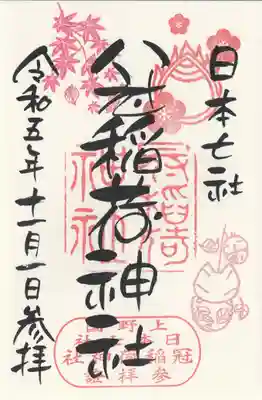 日本七社
冠稲荷神社
令和五年十一月一日参拝
上野國
日本七社
冠稲荷神社
参拝證